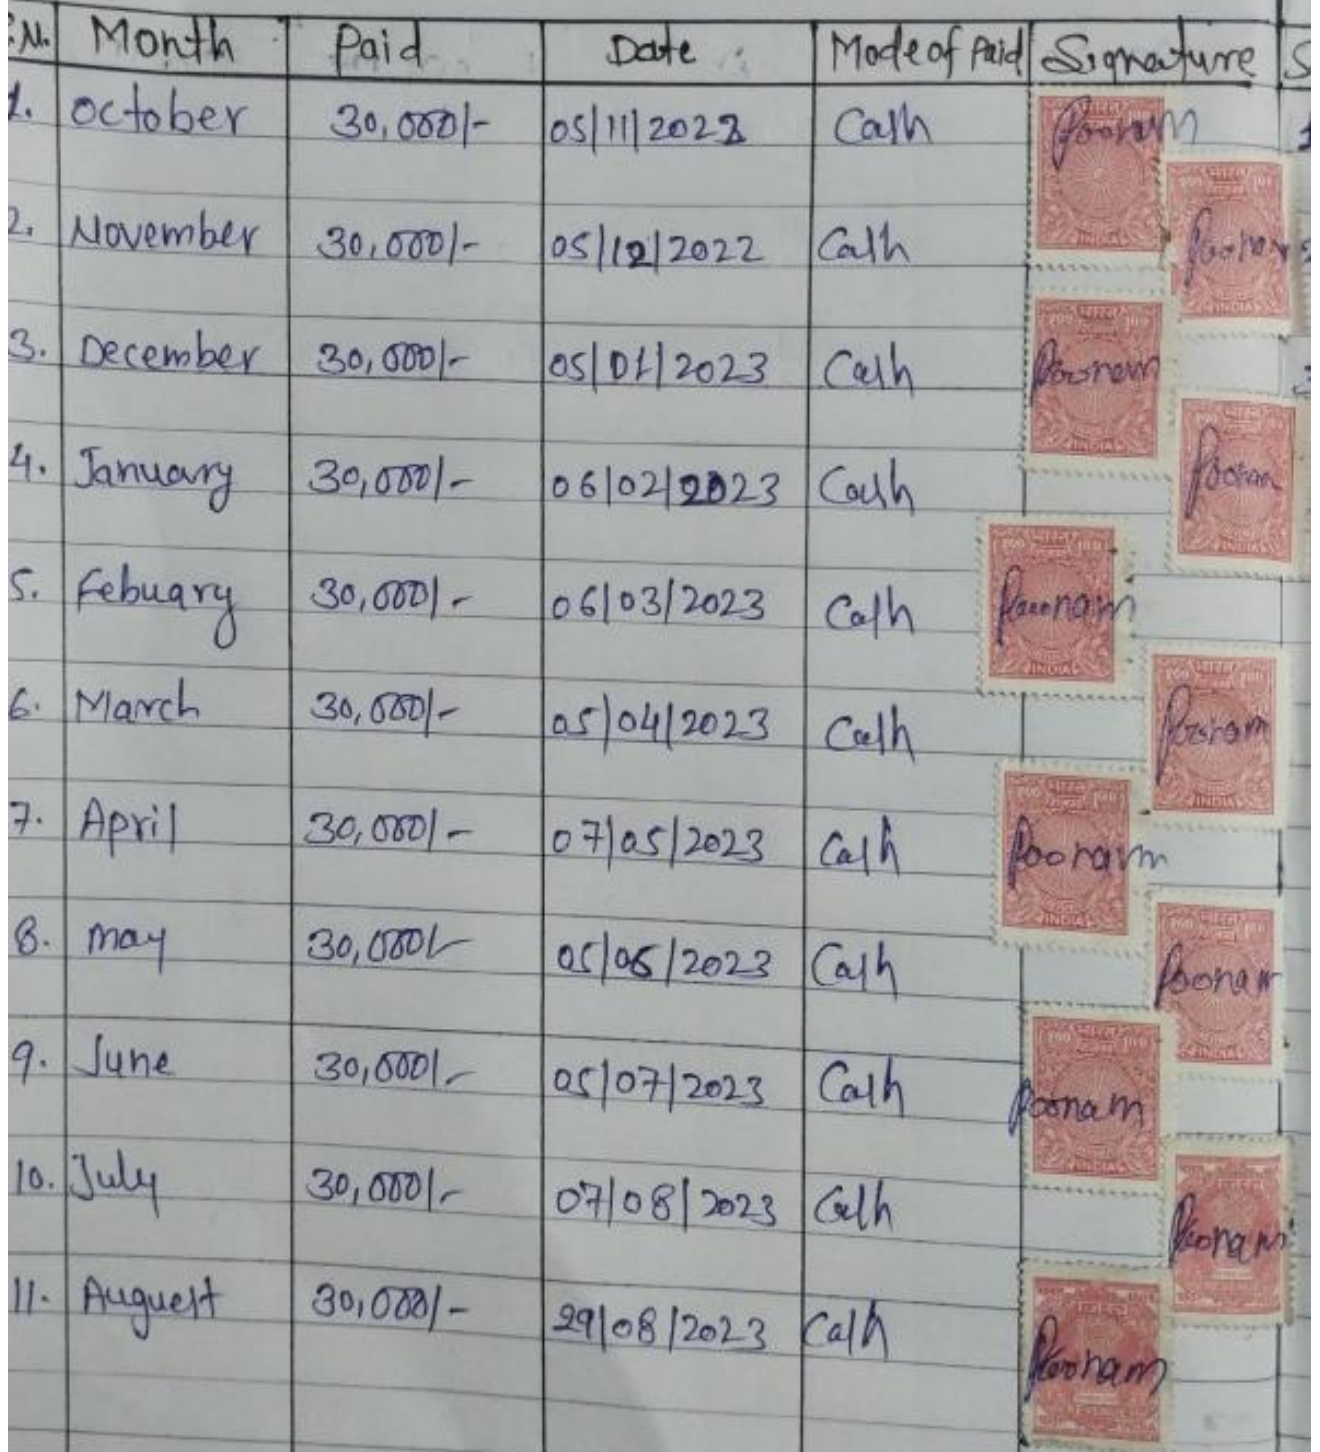 S.N. Month Paid Date Mode of Paid Signature S
1. October 30,000/- 05/11/2022 Cash Poonam 1
2. November 30,000/- 05/12/2022 Cash Poonam 2
3. December 30,000/- 05/01/2023 Cash Poonam 3
4. January 30,000/- 06/02/2023 Cash Poonam
5. Febuary 30,000/- 06/03/2023 Cash Poonam
6. March 30,000/- 05/04/2023 Cash Poonam
7. April 30,000/- 07/05/2023 Cash Poonam
8. May 30,000/- 05/06/2023 Cash Poonam
9. June 30,000/- 05/07/2023 Cash Poonam
10. July 30,000/- 07/08/2023 Cash Poonam
11. Auguest 30,000/- 29/08/2023 Cash Poonam